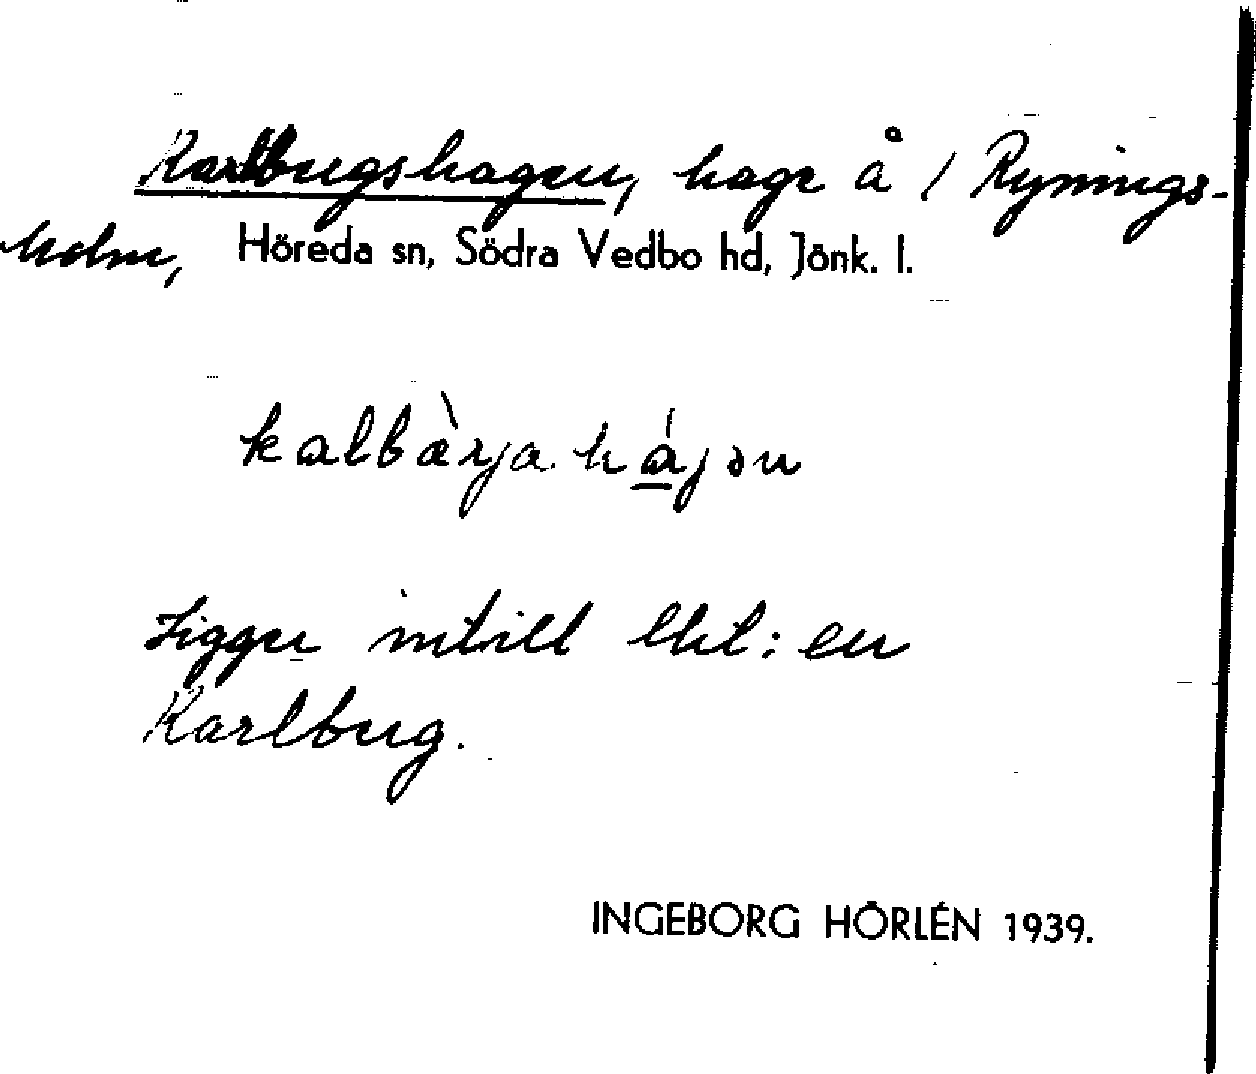 Karlbergshagen, hage å 1 Rynings-
holm, Höreda sn, Södra Vedbo hd, Jönk. l.
kalbàrja hájən
Ligger intill lht: en
Karlberg.
INGEBORG HÖRLÉN 1939.